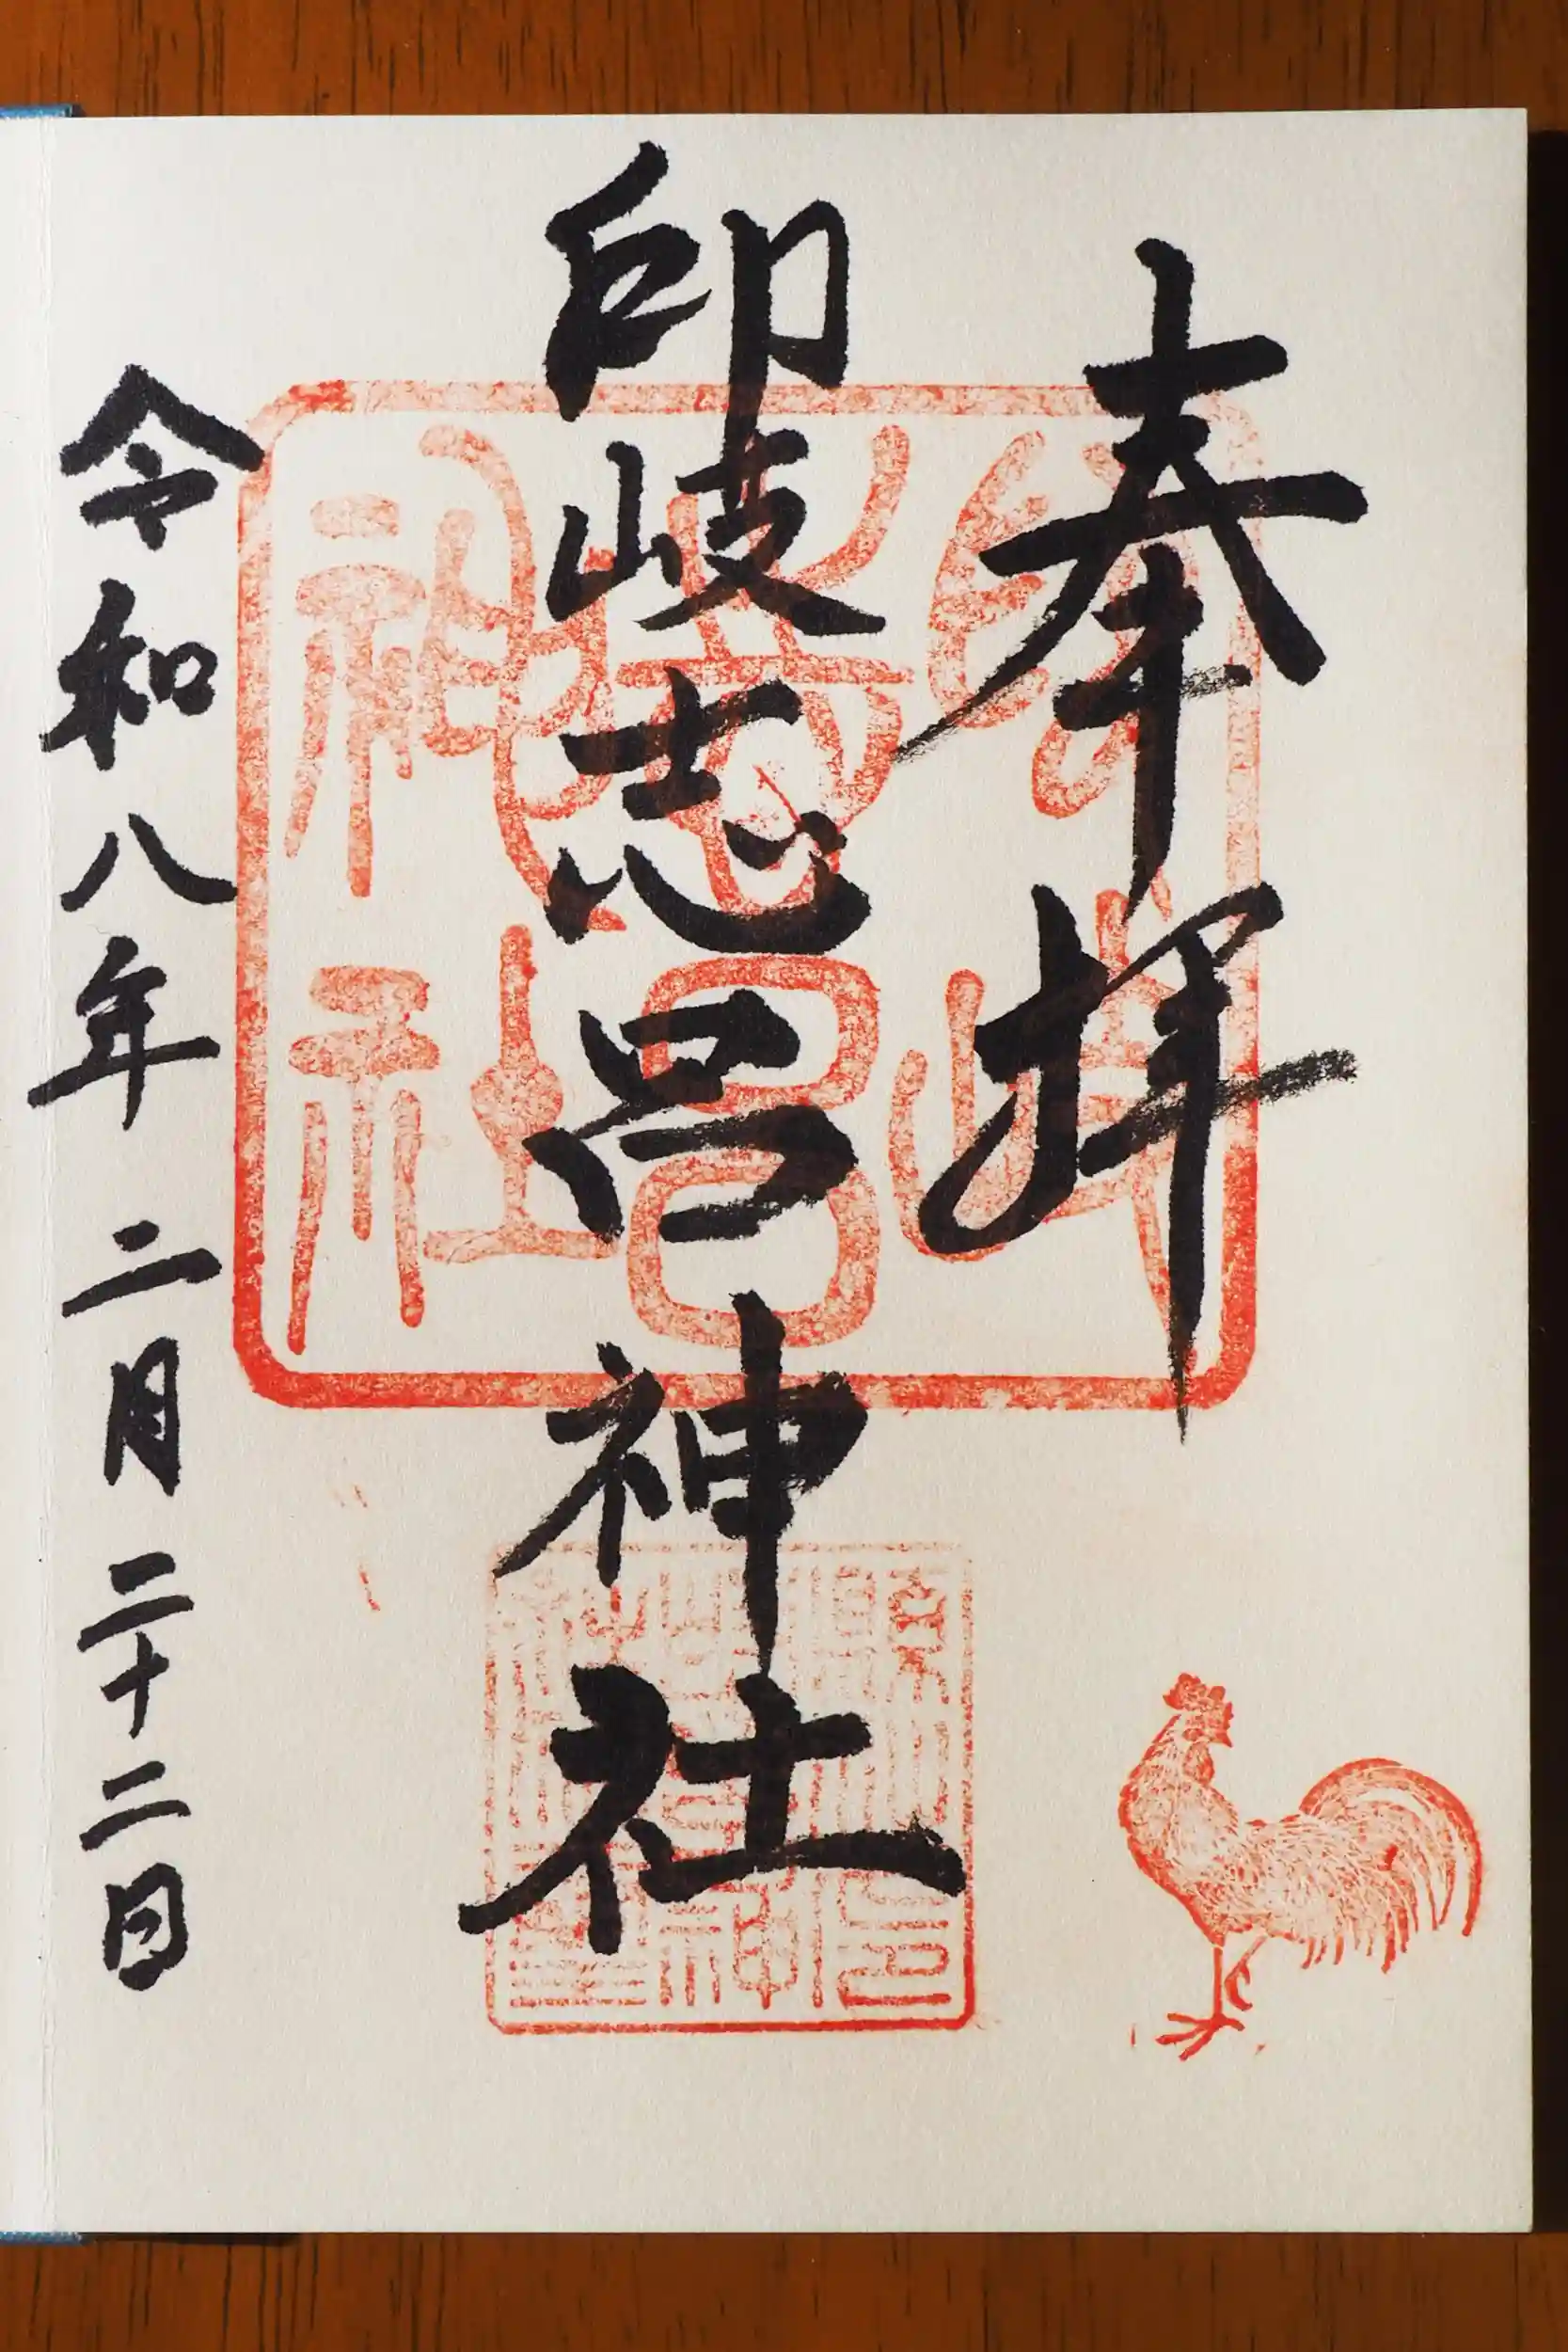 奉拝
印岐志呂神社
令和八年二月二十二日
印岐志呂神社